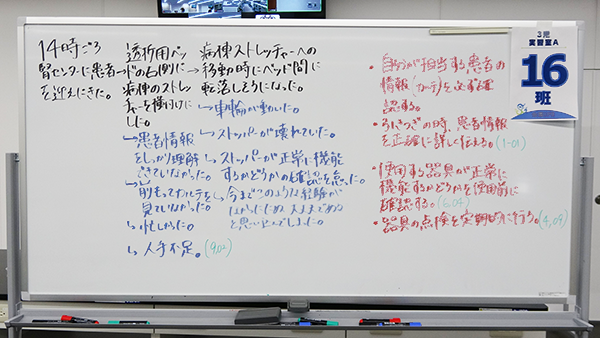 14時ごろ
腎センターに患者
を迎えにきた。
透析用ベッ
ドの右側に
病棟のストレッ
チャーを横付けに
した。
病棟ストレッチャーへの
移動時にベッド間に
転落しそうになった。
↳車輪が動いた。
↳ストッパーが壊れていた。
↳ストッパーが正常に機能
するかどうかの確認を怠った。
↳今までこのような経験が
なかったため、大丈夫であると
思い込んでしまった。
↳患者情報
をしっかり理解
できていなかった。
↳前もってカルテを
見ていなかった。
↳忙しかった。
↳人手不足。(9,02)
・自分が担当する患者の
情報(カルテ)を必ず確
認する。
・引きつぎの時、患者情報
を正確に詳しく伝える。(1-01)
・使用する器具が正常に
機能するかどうかを使用前に
確認する。(6,04)
・器具の点検を定期的に行う。(4,04)
3階
実習室A
16
班